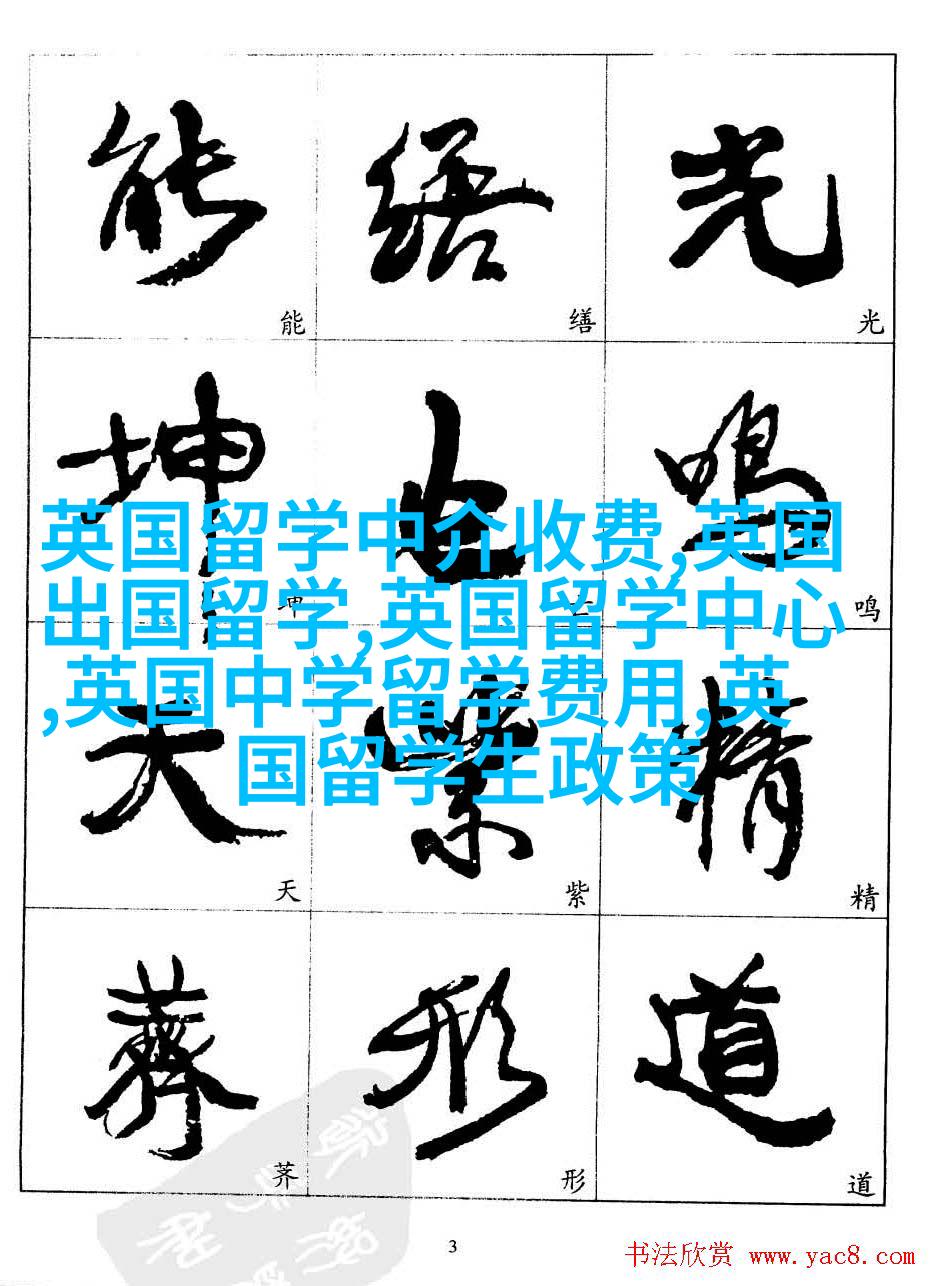 能 缮 光
能 缮 光
坤 七 鸣
英国留学中介收费,英国
出国留学,英国留学中心
,英国中学留学费用,英
国留学生政策
坤 鸣
天 紫 精
天 紫 精
荠 形 道
荠 形 道
3
书法欣赏 www.yac8.com